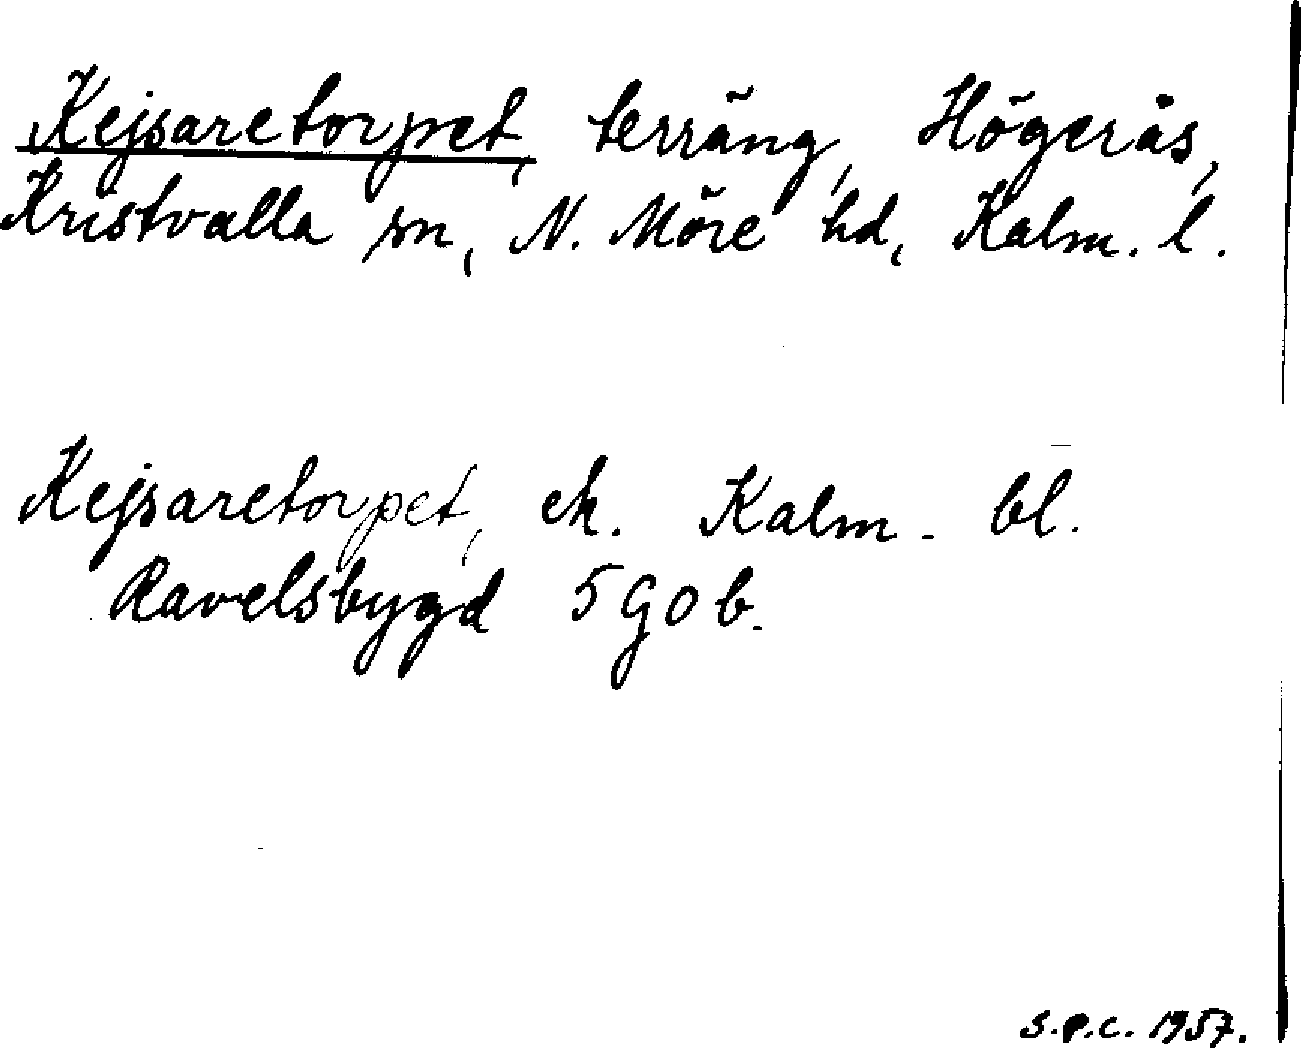 Kejsaretorpet, terräng, Högerås,
Kristvalla sn, N. Möre hd, Kalm. l.
Kejsaretorpet, ek. Kalm. bl.
Ravelsbygd 5 G 0 b.
S.P.C. 1957.